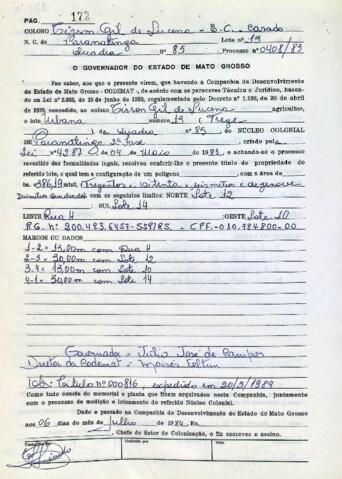 PAG. 172
COLONO Tirson Gil de Lucena - E.C. Casado
N. C. de Paranatinga Lote nº 13
Quadra Nº 85 Processo nº 0408/83
O GOVERNADOR DO ESTADO DE MATO GROSSO
Faz saber, aos que a presente virem, que havendo a Companhia de Desenvolvimento
do Estado de Mato Grosso - CODEMAT -, de acordo com os pareceres Técnico e Jurídico, baseados
na Lei nº 2.933, de 10 de junho de 1969, regulamentada pelo Decreto nº 1.138, de 20 de abril
de 1970, concedido ao Tirson Gil de Lucena agricultor,
o lote Urbana número 13 (Treze
) da Quadra nº 85. DO NÚCLEO COLONIAL
DE Paranatinga 2ª Fase criado pela
Lei nº 4287 de 04 de Maio de 1981, e achando-se o processo
revestido das formalidades legais, resolveu conferir-lhe o presente título de propriedade do
referido lote, o qual tem a configuração de um polígono com a Área de
hs. 386,19 mts2. Trezentos e oitenta e seis metros e dezenove
Decimetros Quadrados, com os seguintes limites: NORTE Lote 12
SUL Lote 14
LESTE Rua H OESTE Lote 10
R.G. nº 200.423.6457-SSP/RS. - CPF-010.784800-00
MARCOS OU DADOS
1-2 = 13,00m com Rua H
2-3 = 30,00m com Lote 12
3-4 = 13,00m com Lote 10
4-1 = 30,00m com Lote 14
Governador = Júlio José de Campos
Diretor da Codemat = Moisés Feltrin
Obs: Título nº 000816, expedido em 20/3/1984
Como tudo consta do memorial e planta que ficam arquivados nesta Companhia, juntamente
com o processo de medição e loteamento do referido Núcleo Colonial.
Dado e passado na Companhia de Desenvolvimento do Estado do Mato Grosso
aos 06 dias do mês de Julho de 1984. Eu,
, Chefe do Setor de Colonização, o fiz escrever e assino.